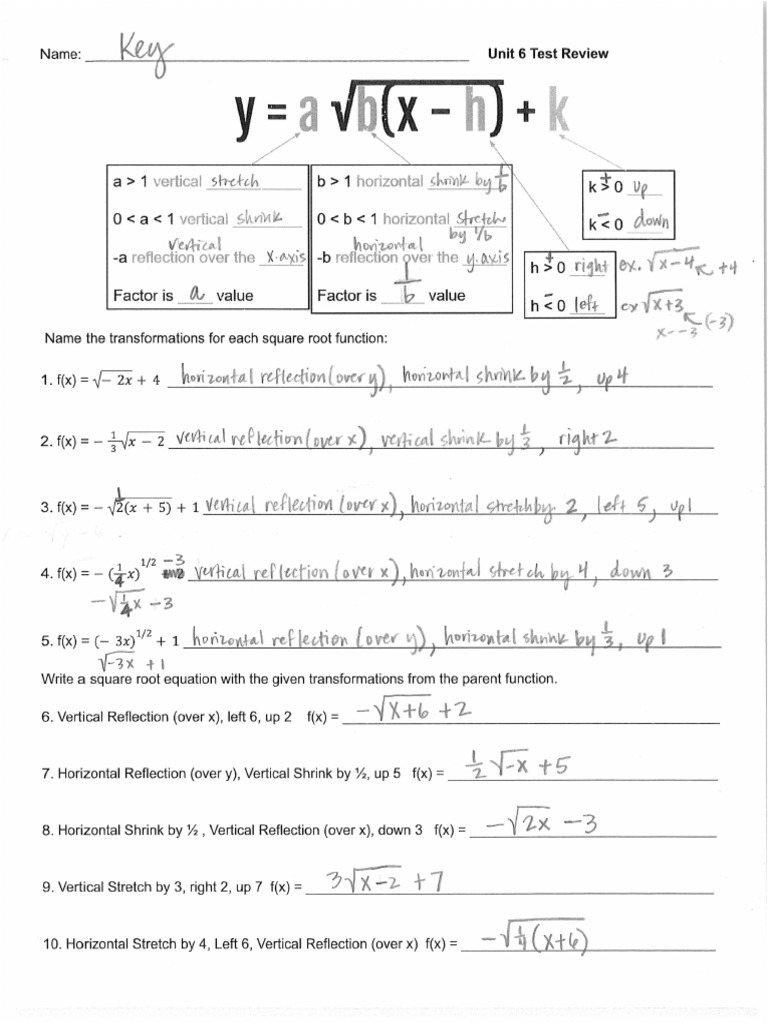 Name: Key Unit 6 Test Review
y = a √b(x − h) + k
a > 1 vertical stretch
0 < a < 1 vertical shrink
vertical
-a reflection over the x.axis
Factor is a value
b > 1 horizontal shrink by 1/b
0 < b < 1 horizontal stretch by 1/b
horizontal
-b reflection over the y.axis
Factor is 1/b value
+
k > 0 up
−
k < 0 down
+
h > 0 right ex. √x−4 +4
−
h < 0 left ex √x+3
x--3 (-3)
Name the transformations for each square root function:
1. f(x) = √− 2x + 4 horizontal reflection (over y), horizontal shrink by 1/2, up 4
2. f(x) = − 1/3 √x − 2 vertical reflection (over x), vertical shrink by 1/3, right 2
3. f(x) = − √1/2(x + 5) + 1 vertical reflection (over x), horizontal stretch by 2, left 5, up 1
4. f(x) = − (1/4 x)^1/2 −3 vertical reflection (over x), horizontal stretch by 4, down 3
−√1/4 x −3
5. f(x) = (− 3x)^1/2 + 1 horizontal reflection (over y), horizontal shrink by 1/3, up 1
√-3x + 1
Write a square root equation with the given transformations from the parent function.
6. Vertical Reflection (over x), left 6, up 2 f(x) = −√x+6 + 2
7. Horizontal Reflection (over y), Vertical Shrink by ½, up 5 f(x) = 1/2 √-x + 5
8. Horizontal Shrink by ½ , Vertical Reflection (over x), down 3 f(x) = −√2x − 3
9. Vertical Stretch by 3, right 2, up 7 f(x) = 3√x−2 + 7
10. Horizontal Stretch by 4, Left 6, Vertical Reflection (over x) f(x) = −√1/4 (x+6)